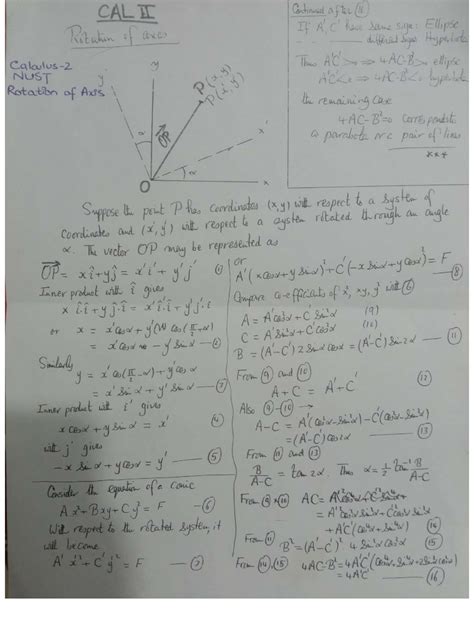 CAL II
Rotation of axes
Calculus-2
NUST
Rotation of Axis
y
y'
P(x,y)
P(x',y')
OP
α
x'
α
O
x
Continued after (16)
If A', C' have same sign: Ellipse
different signs Hyperbola
Thus A'C'>0 ⇒ 4AC-B²>0 ellipse
A'C'<0 ⇒ 4AC-B²<0 hyperbola
the remaining case
4AC-B²=0 corresponds to
a parabola or a pair of lines
***
Suppose the point P has coordinates (x,y) with respect to a system of
coordinates and (x',y') with respect to a system rotated through an angle
α. The vector OP may be represented as
OP = x î + y ĵ = x' i' + y' j' (1)
Inner product with î gives
x î·î + y ĵ·î = x' î'·î + y' j'·i
or x = x' cos α + y' cos(π/2+α)
= x' cos α – y' sin α (2)
Similarly
y = x' cos(π/2-α) + y' cos α
= x' sin α + y' cos α (3)
Inner product with i' gives
x cos α + y sin α = x' (4)
with j' gives
-x sin α + y cos α = y' (5)
Consider the equation of a conic
Ax² + Bxy + Cy² = F (6)
With respect to the rotated system, it
will become
A' x'² + C' y'² = F (7)
or
A'(x cos α + y sin α)² + C'(-x sin α + y cos α)² = F (8)
Compare co-efficients of x², xy, y² with (6)
A = A' cos²α + C' sin²α (9)
C = A' sin²α + C' cos²α (10)
B = (A'-C') 2 sin α cos α = (A'-C') sin 2α (11)
From (9) and (10)
A + C = A' + C' (12)
Also (9)-(10) →
A-C = A'(cos²α-sin²α) - C'(cos²α-sin²α)
= (A'-C') cos 2α (13)
From (11) and (13)
B/(A-C) = tan 2α. Thus α = ½ tan⁻¹ B/(A-C)
From (9)×(10) AC = A'² cos²α sin²α + C'² sin²α cos²α
+ A'C'(cos⁴α + sin⁴α) (14)
From (11) B² = (A'-C')² 4 sin²α cos²α (15)
From (14),(15) 4AC-B² = 4A'C'(cos⁴α + sin⁴α + 2 sin²α cos²α)
= 4A'C' (16)